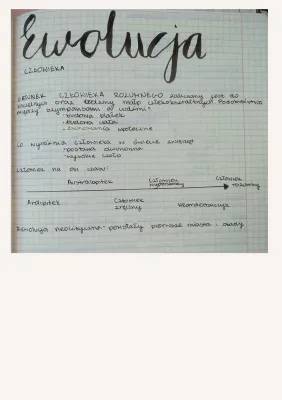 Ewolucja
CZŁOWIEKA
GATUNEK CZŁOWIEKA ROZUMNEGO zaliczany jest do
oraz rodziny małp człekokształtnych. Podobieństwa
między szympansami a ludźmi:
- budowa białek
- budowa ciała
- zachowania społeczne
Co wyróżnia człowieka w świecie zwierząt
- postawa dwunożna
- ciała
Człowiek na osi czasu:
Australopitek Człowiek wyprostowany Człowiek rozumny
Ardipitek Człowiek zręczny Neandertalczyk
Rewolucja neolityczna - powstały pierwsze miasta i osady